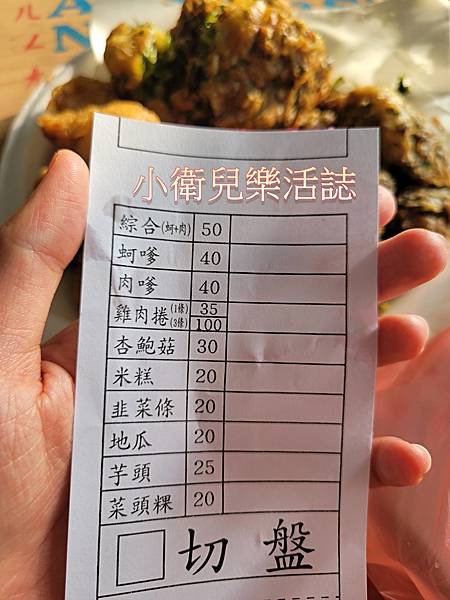 小衛兒樂活誌
綜合(蚵+肉) 50
蚵嗲 40
肉嗲 40
雞肉捲(1條) 35
(3條) 100
杏鮑菇 30
米糕 20
韭菜條 20
地瓜 20
芋頭 25
菜頭粿 20
切盤